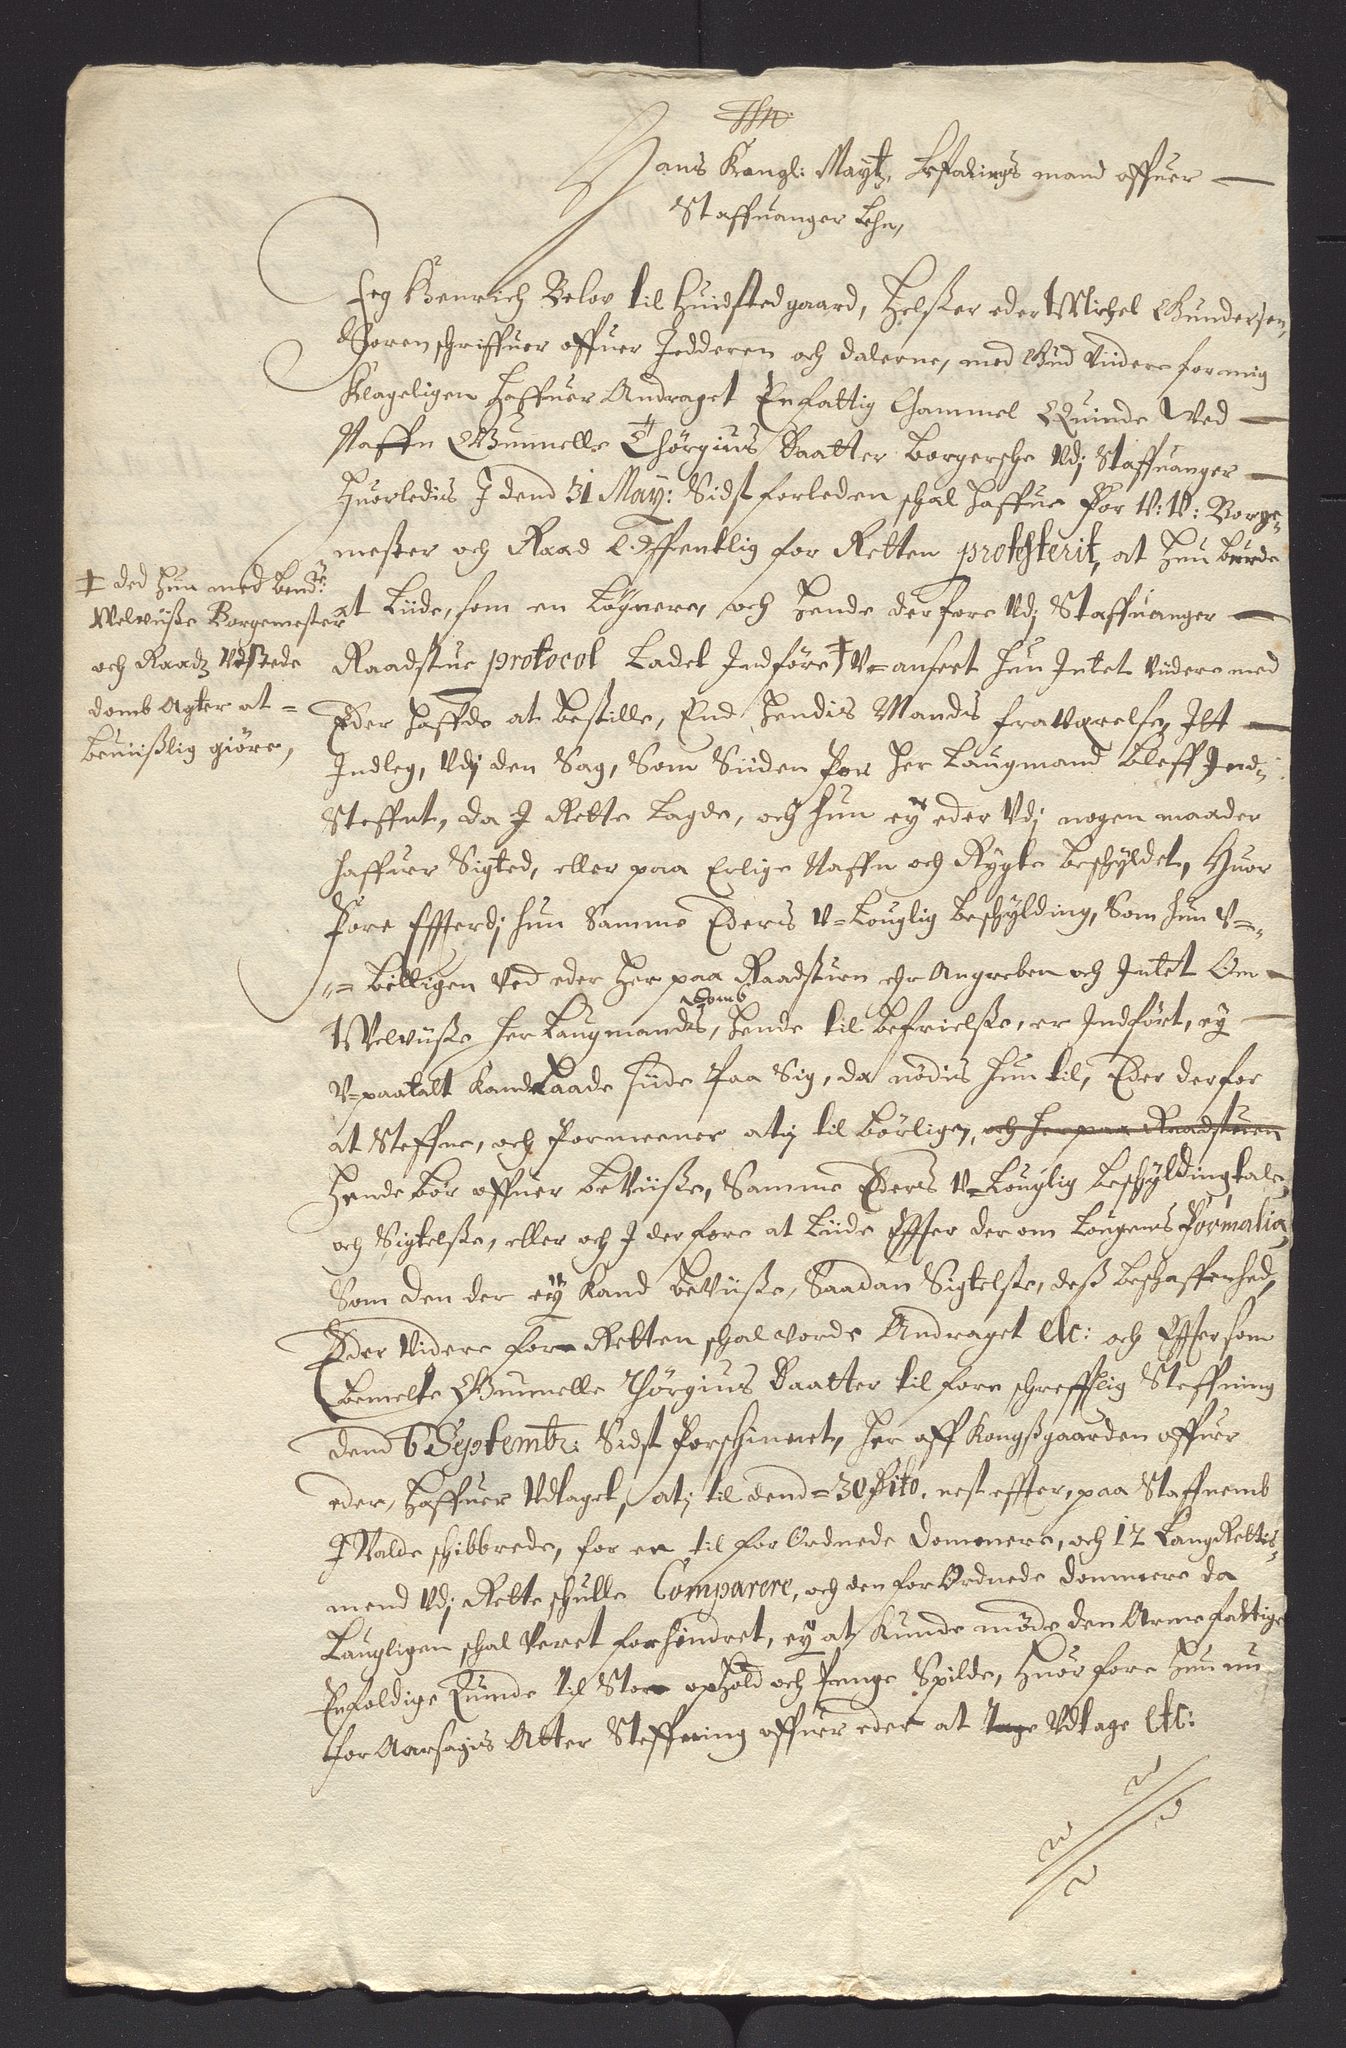 Hans Kongl: Mayts. Befalings mand offuer
Staffuanger Lehn,
Jeg Henrich Below til Huidsted gaard, Helser eder Michel Gundersen,
Soren schriffuer offuer Jedderen och dalerne, med Gud Videre for mig
Klageligen haffuer Andraget En fattig Gammel Quinde Ved
Naffn Gunnelle Thörgius Daatter Borgersche Vdj Staffuanger
Huorledis J dend 31 May: Sidst forleden schal haffue For V: V: Borge-
mester och Raad Offentlig for Retten protesterit, at hun burde
at Liide, som en Løgnere, och hende derfore Vdj Staffuanger
Raadstue protocol Ladet Indføre ‡ V-anseet hun Intet Videre med
Eder haffde at bestille, End hendis Mands fraværelse, Itt
Indleg, Vdj den Sag, Som Siiden For Her Laugmand Bleff Ind-
Steffnt, da J Rette Lagde, och hun ey eder Vdj nogen maader
haffuer Sigted, eller paa Erlige Naffn och Rygte beschyldet, Huor
Fore Effterdj hun Samme Ederis V-Louglig Beschylding, Som hun V-
-billigen Ved eder Her paa Raadstuen ehr Angreben och Intet Om
Welviisse Her Laugmands, domb hende til Befrielsse, er Indført, ey
V-paatalt Kand Laade siide Paa Sig, da nødis hun til, Eder derfor
at Steffne, och Formeener atj til børlige, och her paa Raadstuen
Hende bør offuer beViisse, Samme Eders V-Louglig Beschylding tale,
och Sigtelsse, eller och J derfore at Liide Effter der om Lougens Formalia,
Som den der ey Kand beViisse, Saadan Sigtelsse, dess beschaffenhed,
Eder Videre for Retten schal vorde Andraget etc: och Effter som
bemelte Gunnelle Thörgius Daatter til forn schrefftlig Steffning
dend 6 Septembr: Sidst Forschinnet, her aff Kongssgaarden offuer
eder, haffuer Vdtaget, atj til dend 30 Dito. nest effter, paa Staffnemb
J Nalde schibbrede, for en til for Ordnede Dommere, och 12 LaugRettis-
mend Vdj Rette schulle Comparere, och den for Ordnede dommere da
Laugligen schal Veret forhindret, ey at Kunde møde den Arme fattige
Enfoldige Quinde til Stor ophold och Penge Spilde, Huor fore hun nu
for Aarsagis Atter Steffning offuer eder at tage Vdtage etc:
‡ ded hun med bemte:
Welviisse Borgemester
och Raadz Vdstede
domb Agter at
beviisslig giøre,